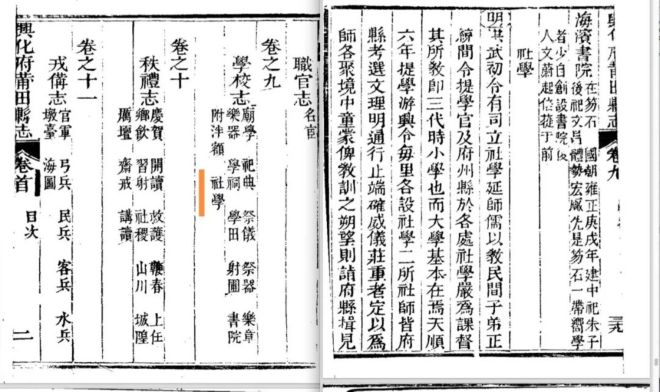 職官志
名宦
卷之九
學校志
廟學 祀典 祭儀 祭器 樂章
樂器 學祠 學田 射圃 書院
附泮額 社學
卷之十
秩禮志
慶賀 開讀 救護 鞭春 上任
鄉飲 習射 社稷 山川 城隍
厲壇 齋戒 講讀
卷之十一
戎備志
官軍 弓兵 民兵 客兵 水兵
墩臺 海圖
興化府莆田縣志 卷首 目次 二
興化府莆田縣志 卷九
海濱書院 在笏石 國朝雍正庚戌年建中祀朱子
後祀文昌體勢宏敞先是笏石一帶嚮學
者少自創設書院後
人文蔚起倍蓰于前
社學
明洪武初令有司立社學延師儒以教民間子弟正
統間令提學官及府州縣於各處社學嚴爲課督
其所教即三代時小學也而大學基本在焉天順
六年提學游興令每里各設社學二所社師皆府
縣考選文理明通行止端確威儀莊重者定以爲
師各聚境中童蒙俾教訓之朔望則詣府縣揖見